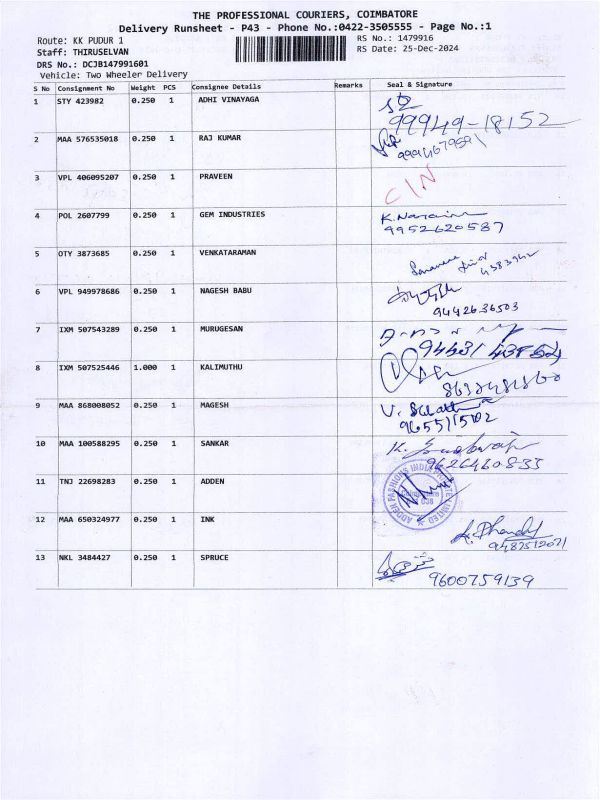 THE PROFESSIONAL COURIERS, COIMBATORE
Delivery Runsheet - P43 - Phone No.:0422-3505555 - Page No.:1
Route: KK PUDUR 1 RS No.: 1479916
Staff: THIRUSELVAN RS Date: 25-Dec-2024
DRS No.: DCJB147991601
Vehicle: Two Wheeler Delivery
S No Consignment No Weight PCS Consignee Details Remarks Seal & Signature
1 STY 423982 0.250 1 ADHI VINAYAGA
99949-18152
2 MAA 576535018 0.250 1 RAJ KUMAR
3 VPL 406095207 0.250 1 PRAVEEN
C/N
4 POL 2607799 0.250 1 GEM INDUSTRIES
9952620587
5 OTY 3873685 0.250 1 VENKATARAMAN
6 VPL 949978686 0.250 1 NAGESH BABU
9442636503
7 IXM 507543289 0.250 1 MURUGESAN
8 IXM 507525446 1.000 1 KALIMUTHU
9 MAA 868008052 0.250 1 MAGESH
9655115102
10 MAA 100588295 0.250 1 SANKAR
9626460833
11 TNJ 22698283 0.250 1 ADDEN
12 MAA 650324977 0.250 1 INK
13 NKL 3484427 0.250 1 SPRUCE
9600759139